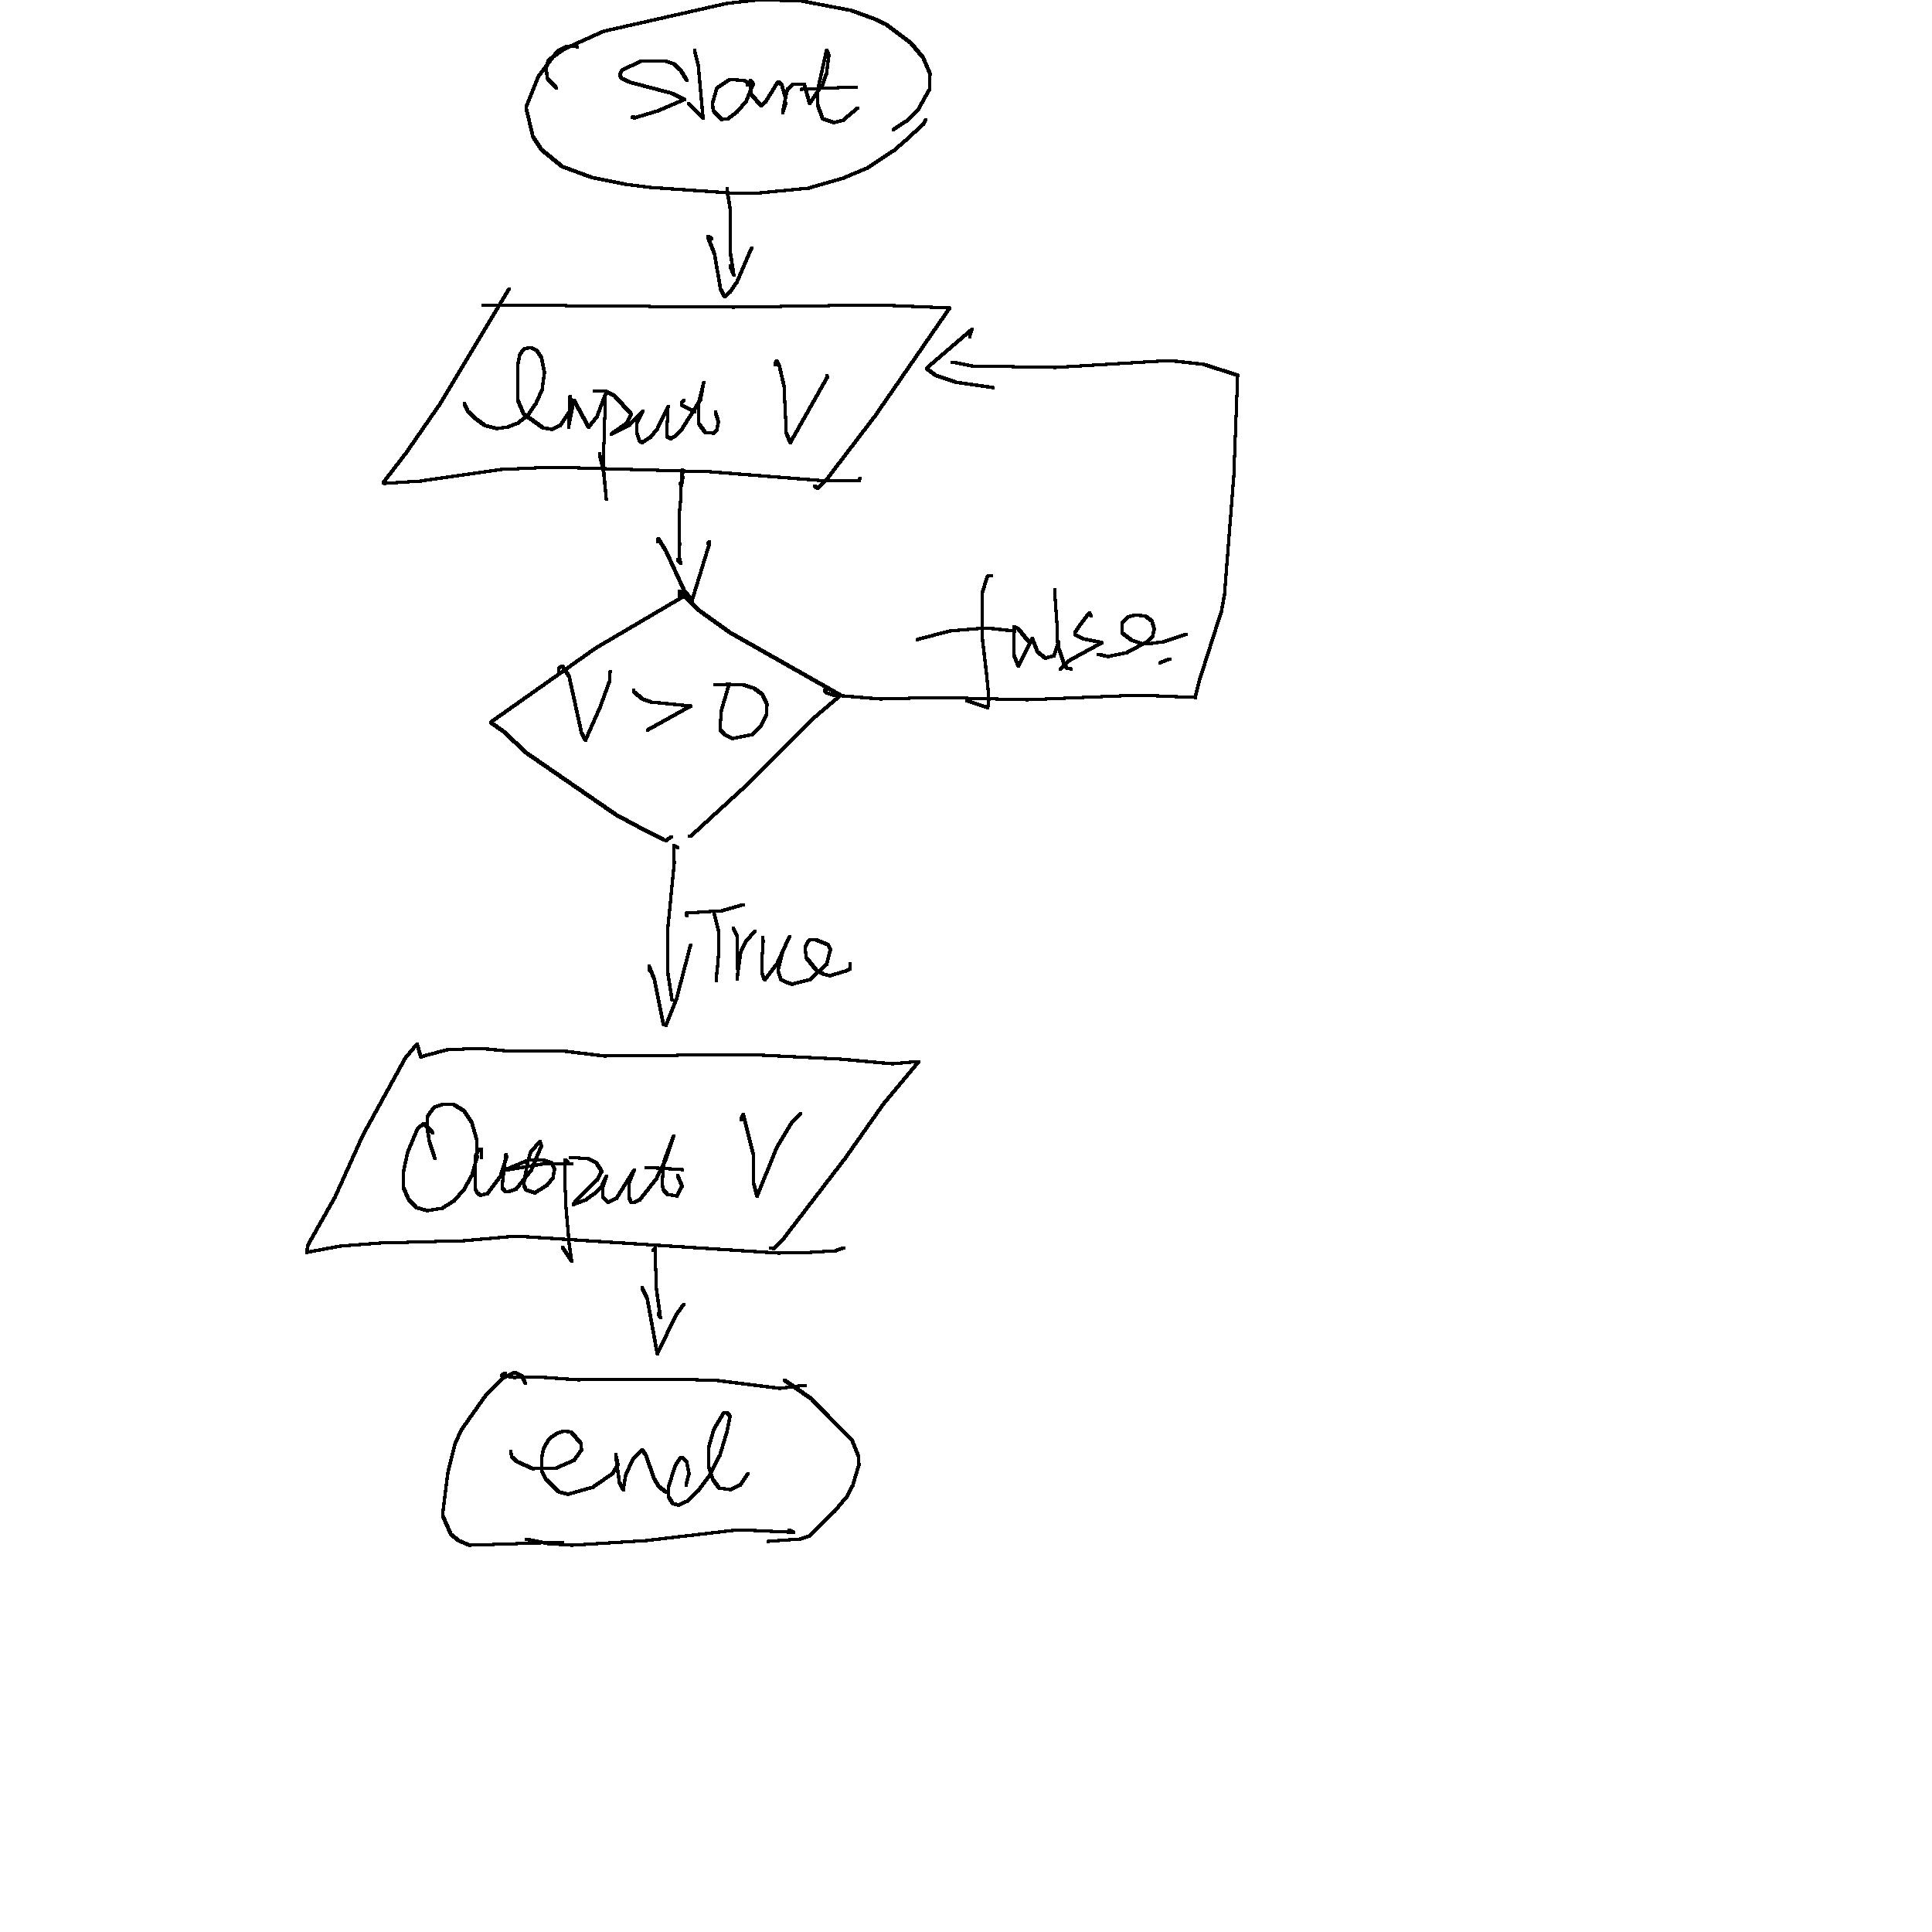 Start
Input V
false
V > 0
True
Output V
end